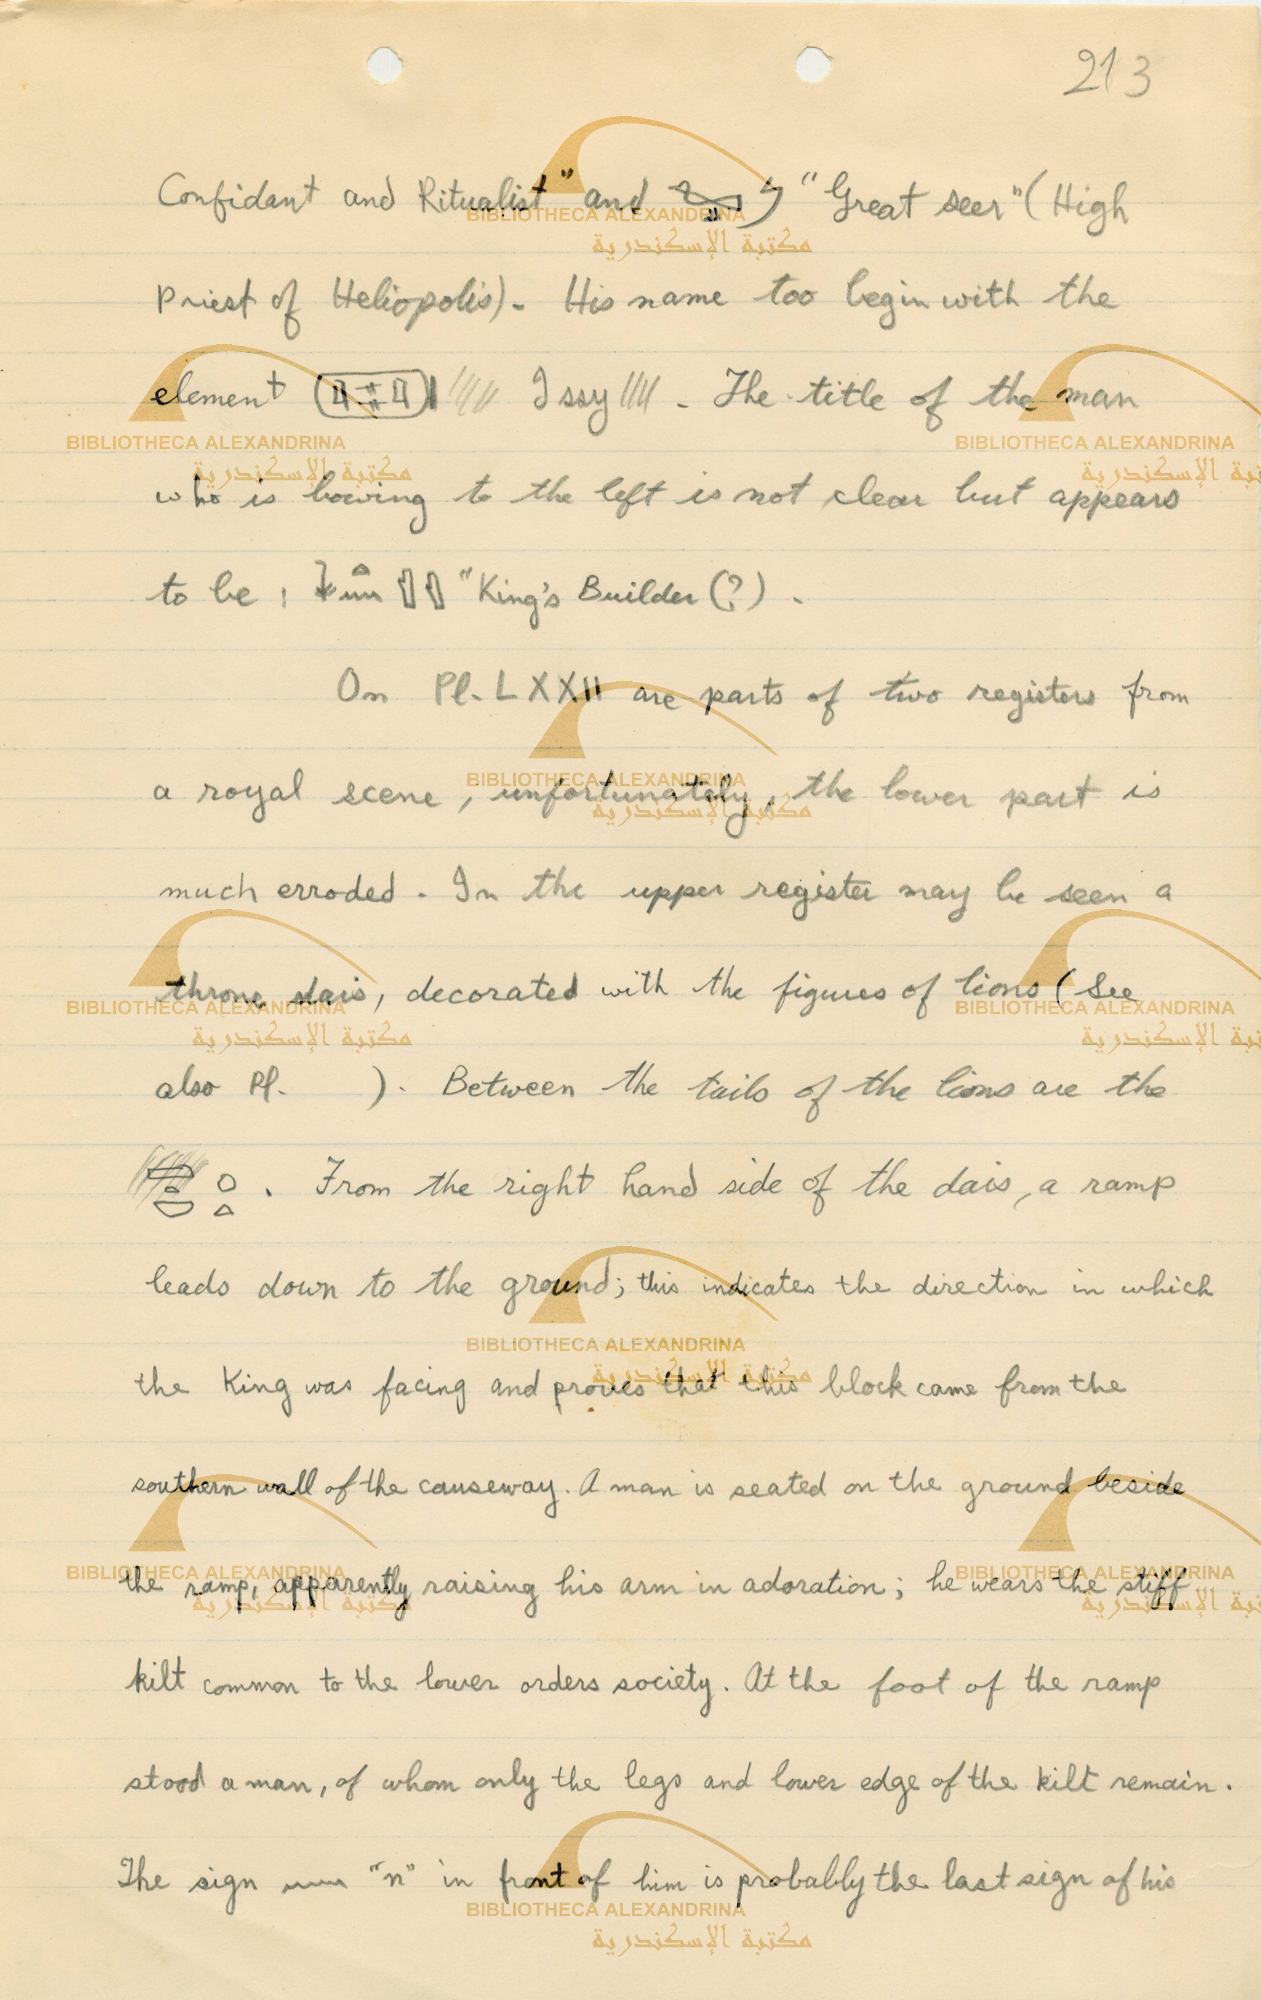 213
Confidant and Ritualist" and "Great seer" (High
Priest of Heliopolis). His name too begin with the
element Issy //// . The title of the man
who is bowing to the left is not clear but appears
to be : "King's Builder (?) .
On Pl. LXXII are parts of two registers from
a royal scene, unfortunately, the lower part is
much erroded. In the upper register may be seen a
throne dais, decorated with the figures of lions (See
also Pl. ). Between the tails of the lions are the
. From the right hand side of the dais, a ramp
leads down to the ground; this indicates the direction in which
the King was facing and proves that this block came from the
southern wall of the causeway. A man is seated on the ground beside
the ramp, apparently raising his arm in adoration; he wears the stiff
kilt common to the lower orders society. At the foot of the ramp
stood a man, of whom only the legs and lower edge of the kilt remain.
The sign "n" in front of him is probably the last sign of his
BIBLIOTHECA ALEXANDRINA
مكتبة الإسكندرية